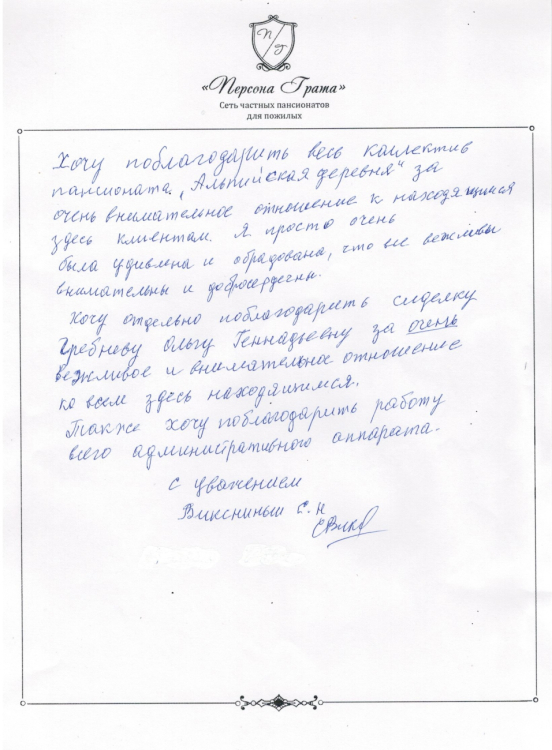 П Г
«Персона Грата»
Сеть частных пансионатов
для пожилых
Хочу поблагодарить весь коллектив
пансионата „Альпийская деревня" за
очень внимательное отношение к находящимся
здесь клиентам. Я просто очень
была удивлена и обрадована, что все вежливы
внимательны и добросердечны.
Хочу отдельно поблагодарить сиделку
Гребневу Ольгу Геннадьевну за очень
вежливое и внимательное отношение
ко всем здесь находящимся.
Также хочу поблагодарить работу
всего административного аппарата.
с уважением
Виксниньш С. Н